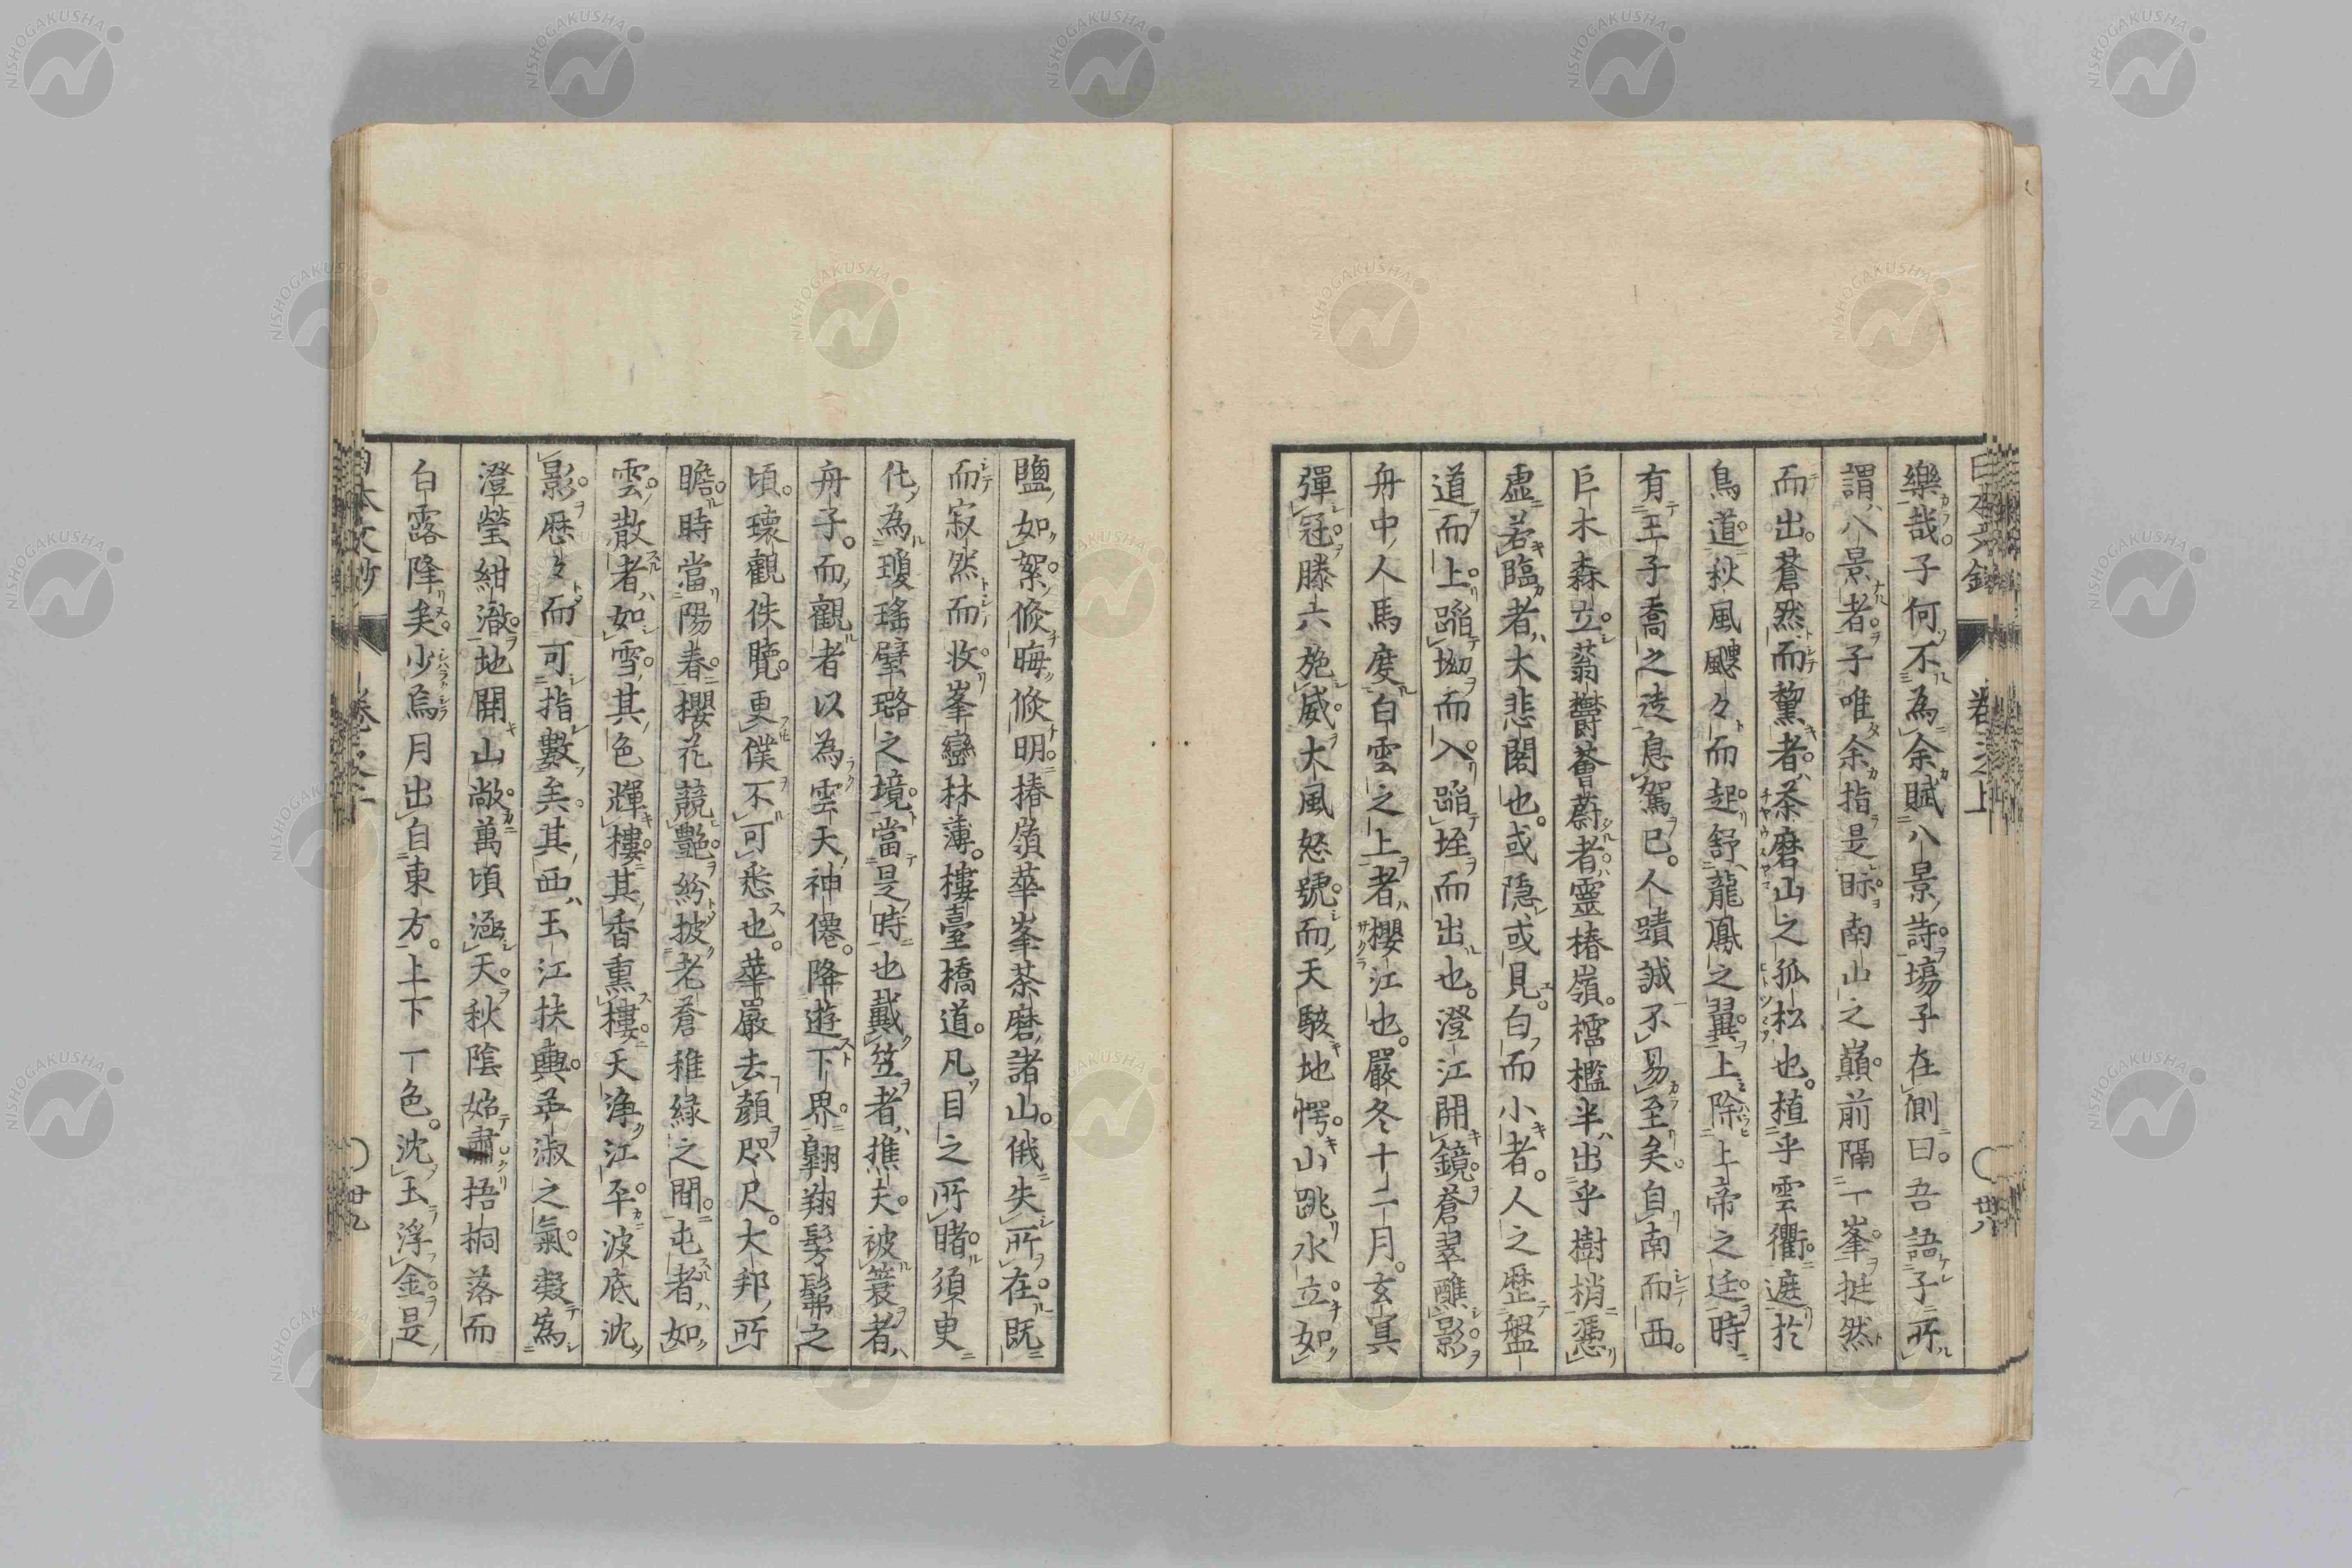 樂哉子何不為余賦八景詩塲子在側曰吾語子所
謂八景者子唯余指是眎南山之巔前隔一峯挺然
而出蒼然而黧者茶磨山之孤松也植乎雲衢遮於
鳥道秋風颸々而起舒龍鳳之翼上除上帝之廷時
有王子喬之迭息駕已人蹟誠不易至矣自南而西
巨木森立蓊鬱薈蔚者靈椿嶺櫺檻半出乎樹梢憑
虛若臨者大悲閣也或隠或見白而小者人之歴盤
道而上蹈坳而入蹈垤而出也澄江開鏡蒼翠醮影
舟中人馬度白雲之上者櫻江也嚴冬十二月玄冥
彈冠滕六施威大風怒號而天駭地愕山跳水立如
鹽如絮倐晦倐明椿嶺華峯茶磨諸山俄失所在既
而寂然而收峯巒林薄樓臺橋道凡目之所睹須臾
化為瓊瑤璧璐之境當是時也戴笠者樵夫被簑者
舟子而觀者以為雲天神僊降遊下界翺翔髣髴之
頃瓌觀佚覽更僕不可悉也華嚴去顏咫尺大邦所
瞻時當陽春櫻花競艷紛披老蒼稚緑之間屯者如
雲散者如雪其色輝樓其香熏樓天淨江平波底沈
影歴々而可指數矣其西玉江扶輿平淑之氣凝為
澄瑩紺澈地開山敞萬頃涵天秋陰始肅梧桐落而
白露降矣少焉月出自東方上下一色沈玉浮金是
卷之上
廿八
日本文鈔
卷之上
廿九